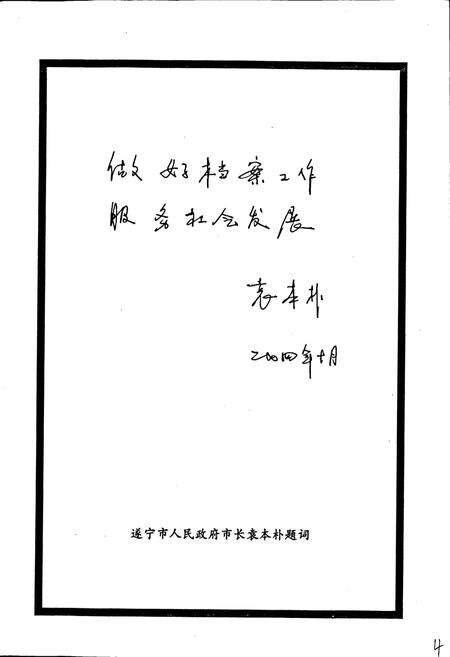 做好档案工作
服务社会发展
袁本朴
二〇〇四年十月
遂宁市人民政府市长袁本朴题词
4